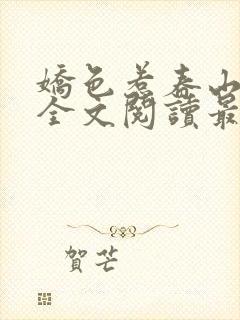 嬌色若春山
全文閱讀最
賀芒